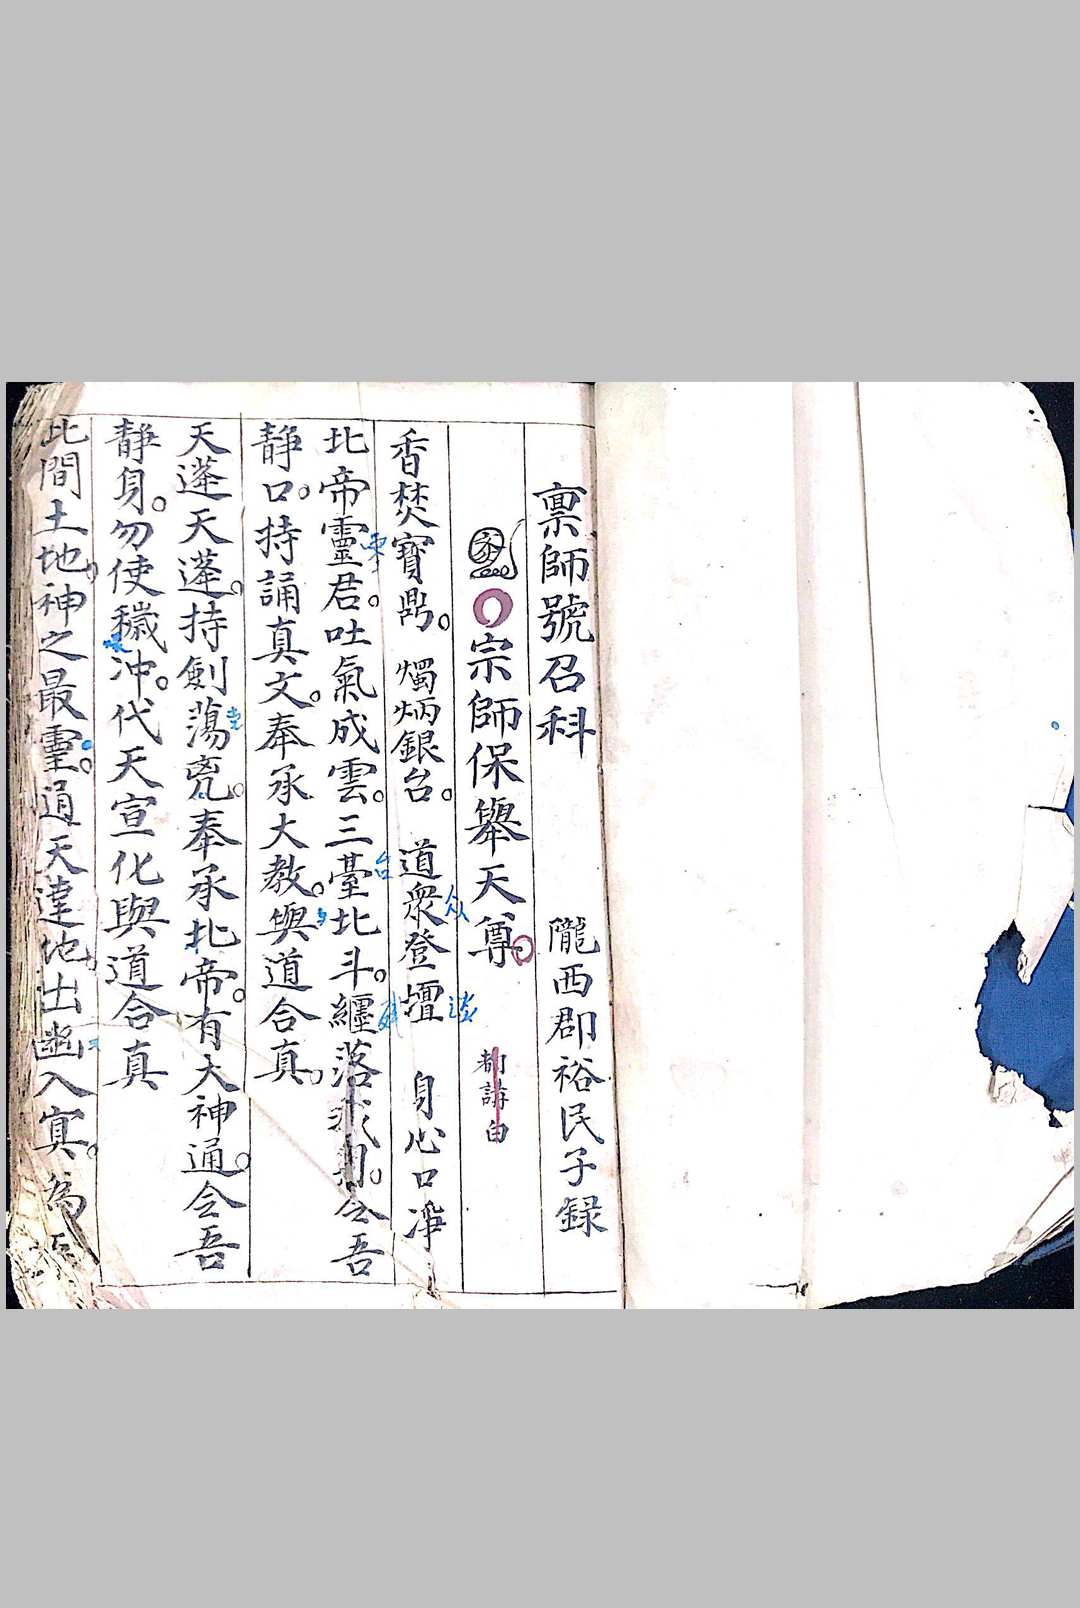 禀師號召科　隴西郡裕民子録
宗師保舉天尊　都講白
香焚寶鼎。燭炳銀台。道衆登壇　身心口淨
北帝靈君。吐氣成雲。三臺北斗。纏落我 。令吾
靜口。持誦真文。奉承大教。與道合真。
天蓬天蓬。持劍蕩兇。奉承北帝。有大神通。令吾
靜身。勿使穢冲。代天宣化與道合真
此間土地。神之最靈。通天達地。出幽入冥。為